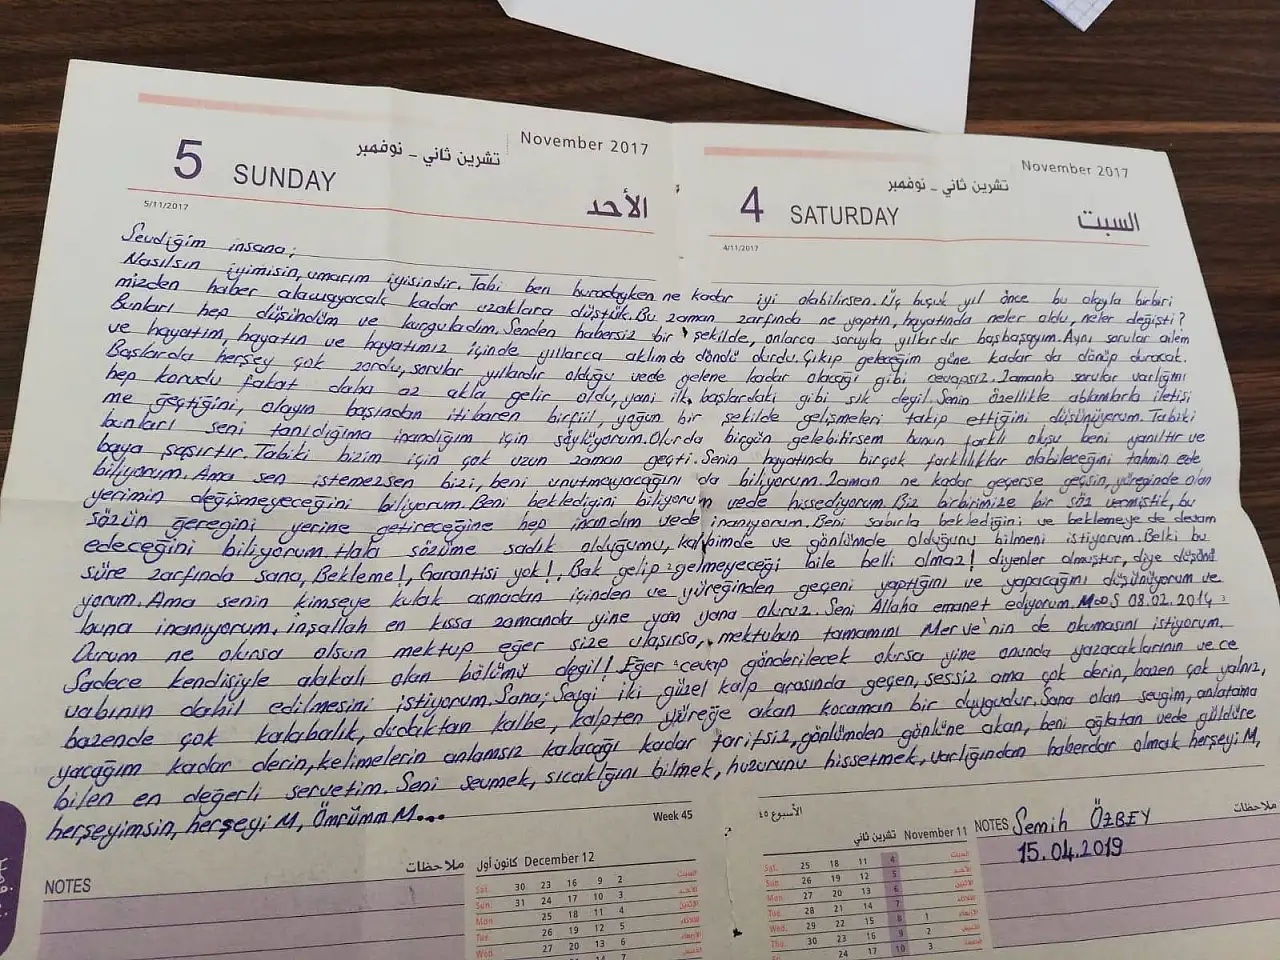 November 2017
تشرين ثاني - نوفمبر
5 SUNDAY
الأحد
5/11/2017
November 2017
تشرين ثاني - نوفمبر
4 SATURDAY
السبت
4/11/2017
Sevdiğim insana;
Nasılsın iyimisin, umarım iyisindir. Tabi ben buradayken ne kadar iyi olabilirsen. Üç buçuk yıl önce bu olayla birbiri
mizden haber alamayacak kadar uzaklara düştük. Bu zaman zarfında ne yaptın, hayatında neler oldu, neler değişti?
Bunları hep düşündüm ve kurguladım. Senden habersiz bir şekilde, onlarca soruyla yıllardır başbaşayım. Aynı sorular ailem
ve hayatım, hayatın ve hayatımız içinde yıllarca aklımda döndü durdu. Çıkıp geleceğim güne kadar da dönüp duracak.
Başlarda herşey çok zordu, sorular yıllardır olduğu vede gelene kadar olacağı gibi cevapsız. Zamanla sorular varlığını
hep korudu fakat daha az akla gelir oldu, yani ilk başlardaki gibi sık değil. Senin özellikle ablamlarla iletişi
me geçtiğini, olayın başından itibaren birçil, yoğun bir şekilde gelişmeleri takip ettiğini düşünüyorum. Tabiki
bunları seni tanıdığıma inandığım için söylüyorum. Olurda birgün gelebilirsem bunun farklı oluşu beni yanıltır ve
baya şaşırtır. Tabiki bizim için çok uzun zaman geçti. Senin hayatında birçok farklılıklar olabileceğini tahmin ede
biliyorum. Ama sen istemezsen bizi, beni unutmayacağını da biliyorum. Zaman ne kadar geçerse geçsin, yüreğinde olan
yerimin değişmeyeceğini biliyorum. Beni beklediğini biliyorum vede hissediyorum. Biz birbirimize bir söz vermiştik, bu
sözün gereğini yerine getireceğine hep inandım vede inanıyorum. Beni sabırla beklediğini ve beklemeye de devam
edeceğini biliyorum. Hala sözüme sadık olduğumu, kalbimde ve gönlümde olduğunu bilmeni istiyorum. Belki bu
süre zarfında sana, Bekleme!, Garantisi yok!, Bak gelip gelmeyeceği bile belli olmaz! diyenler olmuştur, diye düşünü
yorum. Ama senin kimseye kulak asmadan içinden ve yüreğinden geçeni yaptığını ve yapacağını düşünüyorum ve
buna inanıyorum. inşallah en kısa zamanda yine yan yana oluruz. Seni Allaha emanet ediyorum. M∞S 08.02.2014
Durum ne olursa olsun mektup eğer size ulaşırsa, mektubun tamamını Merve'nin de okumasını istiyorum.
Sadece kendisiyle alakalı olan bölümü değil! Eğer cevap gönderilecek olursa yine onunda yazacaklarının ve ce
vabının dahil edilmesini istiyorum. Sana; Sevgi iki güzel kalp arasında geçen, sessiz ama çok derin, bazen çok yalnız,
bazende çok kalabalık, dudaktan kalbe, kalpten yüreğe akan kocaman bir duygudur. Sana olan sevgim, anlatama
yacağım kadar derin, kelimelerin anlamsız kalacağı kadar tarifsiz, gönlümden gönlüne akan, beni ağlatan vede güldüre
bilen en değerli servetim. Seni sevmek, sıcaklığını bilmek, huzurunu hissetmek, varlığından haberdar olmak herşeyi M,
herşeyimsin, herşeyi M, Ömrümm M...
Week 45
الأسبوع ٤٥
NOTES Semih ÖZBEY
ملاحظات
15.04.2019
NOTES
ملاحظات
كانون أول December 12
Sat. 30 23 16 9 2 السبت
Sun. 31 24 17 10 3 الأحد
Mon. 25 18 11 4
Tue. 26 19 12 5
Wed. 27 20 13 6
تشرين ثاني November 11
Sat. 25 18 11 4 السبت
Sun. 26 19 12 5 الأحد
Mon. 27 20 13 6
Tue. 28 21 14 7
Wed. 29 22 15 8 1
30 23 16 9 2
24 17 10 3